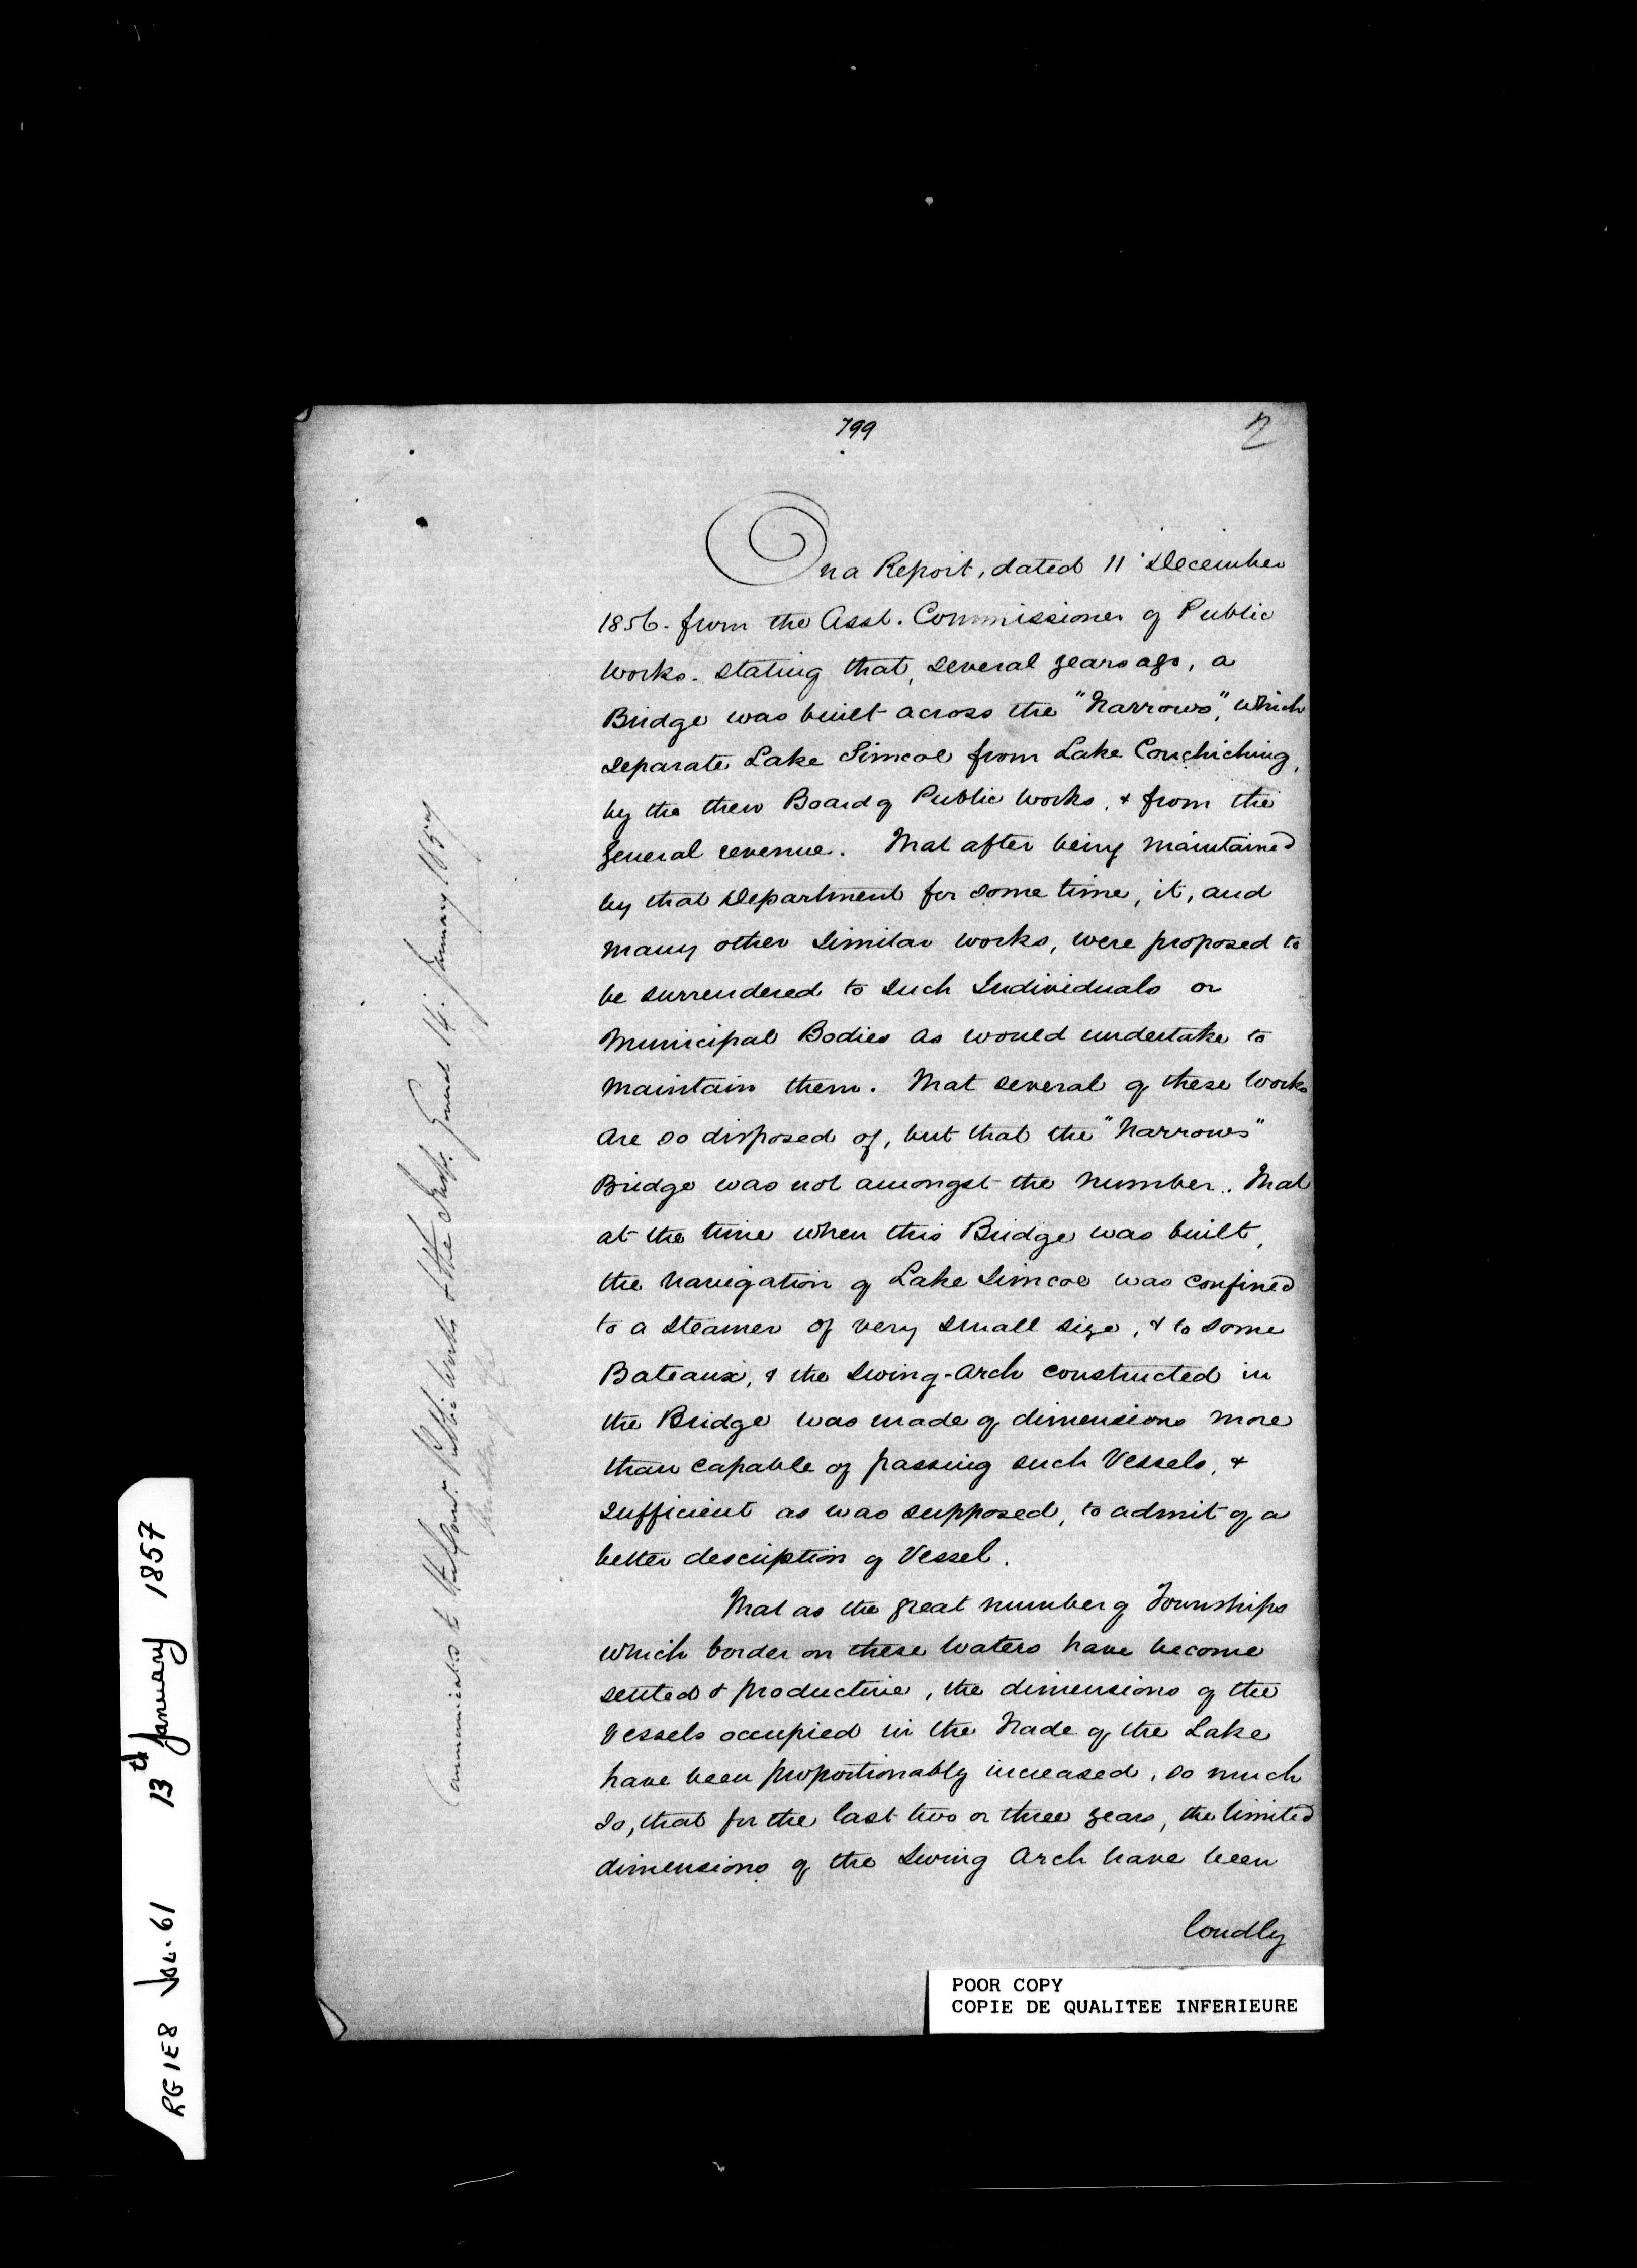 799
2
On a Report, dated 11 December
1856. from the Asst. Commissioner of Public
Works. stating that, several years ago, a
Bridge was built across the "Narrows", which
separate Lake Simcoe from Lake Couchiching,
by the then Board of Public Works, & from the
general revenue. That after being maintained
by that Department for some time, it, and
many other similar works, were proposed to
be surrendered to such Individuals or
Municipal Bodies as would undertake to
maintain them. That several of these Works
are so disposed of, but that the "Narrows"
Bridge was not amongst the number. That
at the time when this Bridge was built,
the navigation of Lake Simcoe was confined
to a steamer of very small size, & to some
Bateaux, & the Swing-Arch constructed in
the Bridge was made of dimensions more
than capable of passing such Vessels, &
sufficient as was supposed, to admit of a
better description of Vessel.
That as the great number of Townships
which border on these Waters have become
settled & productive, the dimensions of the
Vessels occupied in the Trade of the Lake
have been proportionably increased, so much
so, that for the last two or three years, the limited
dimensions of the Swing Arch have been
loudly
Communicated to the Comr. Public Works & the Insp. General 14. January 1857
POOR COPY
COPIE DE QUALITEE INFERIEURE
RG 1 E8 Vol. 61 13th January 1857